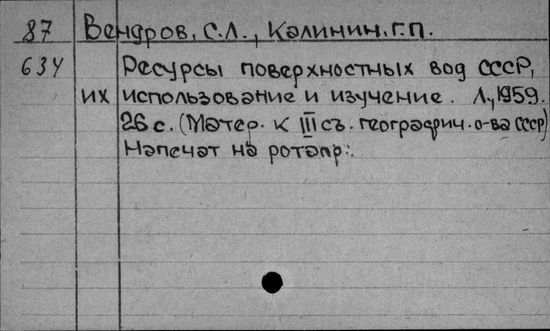 87 Вендров, С.Л., Калинин, Г.П.
634 Ресурсы поверхностных вод СССР,
их использование и изучение. Л., 1959.
26 с. (Матер. к III съ. географич. о-ва СССР)
Напечат на ротапр.